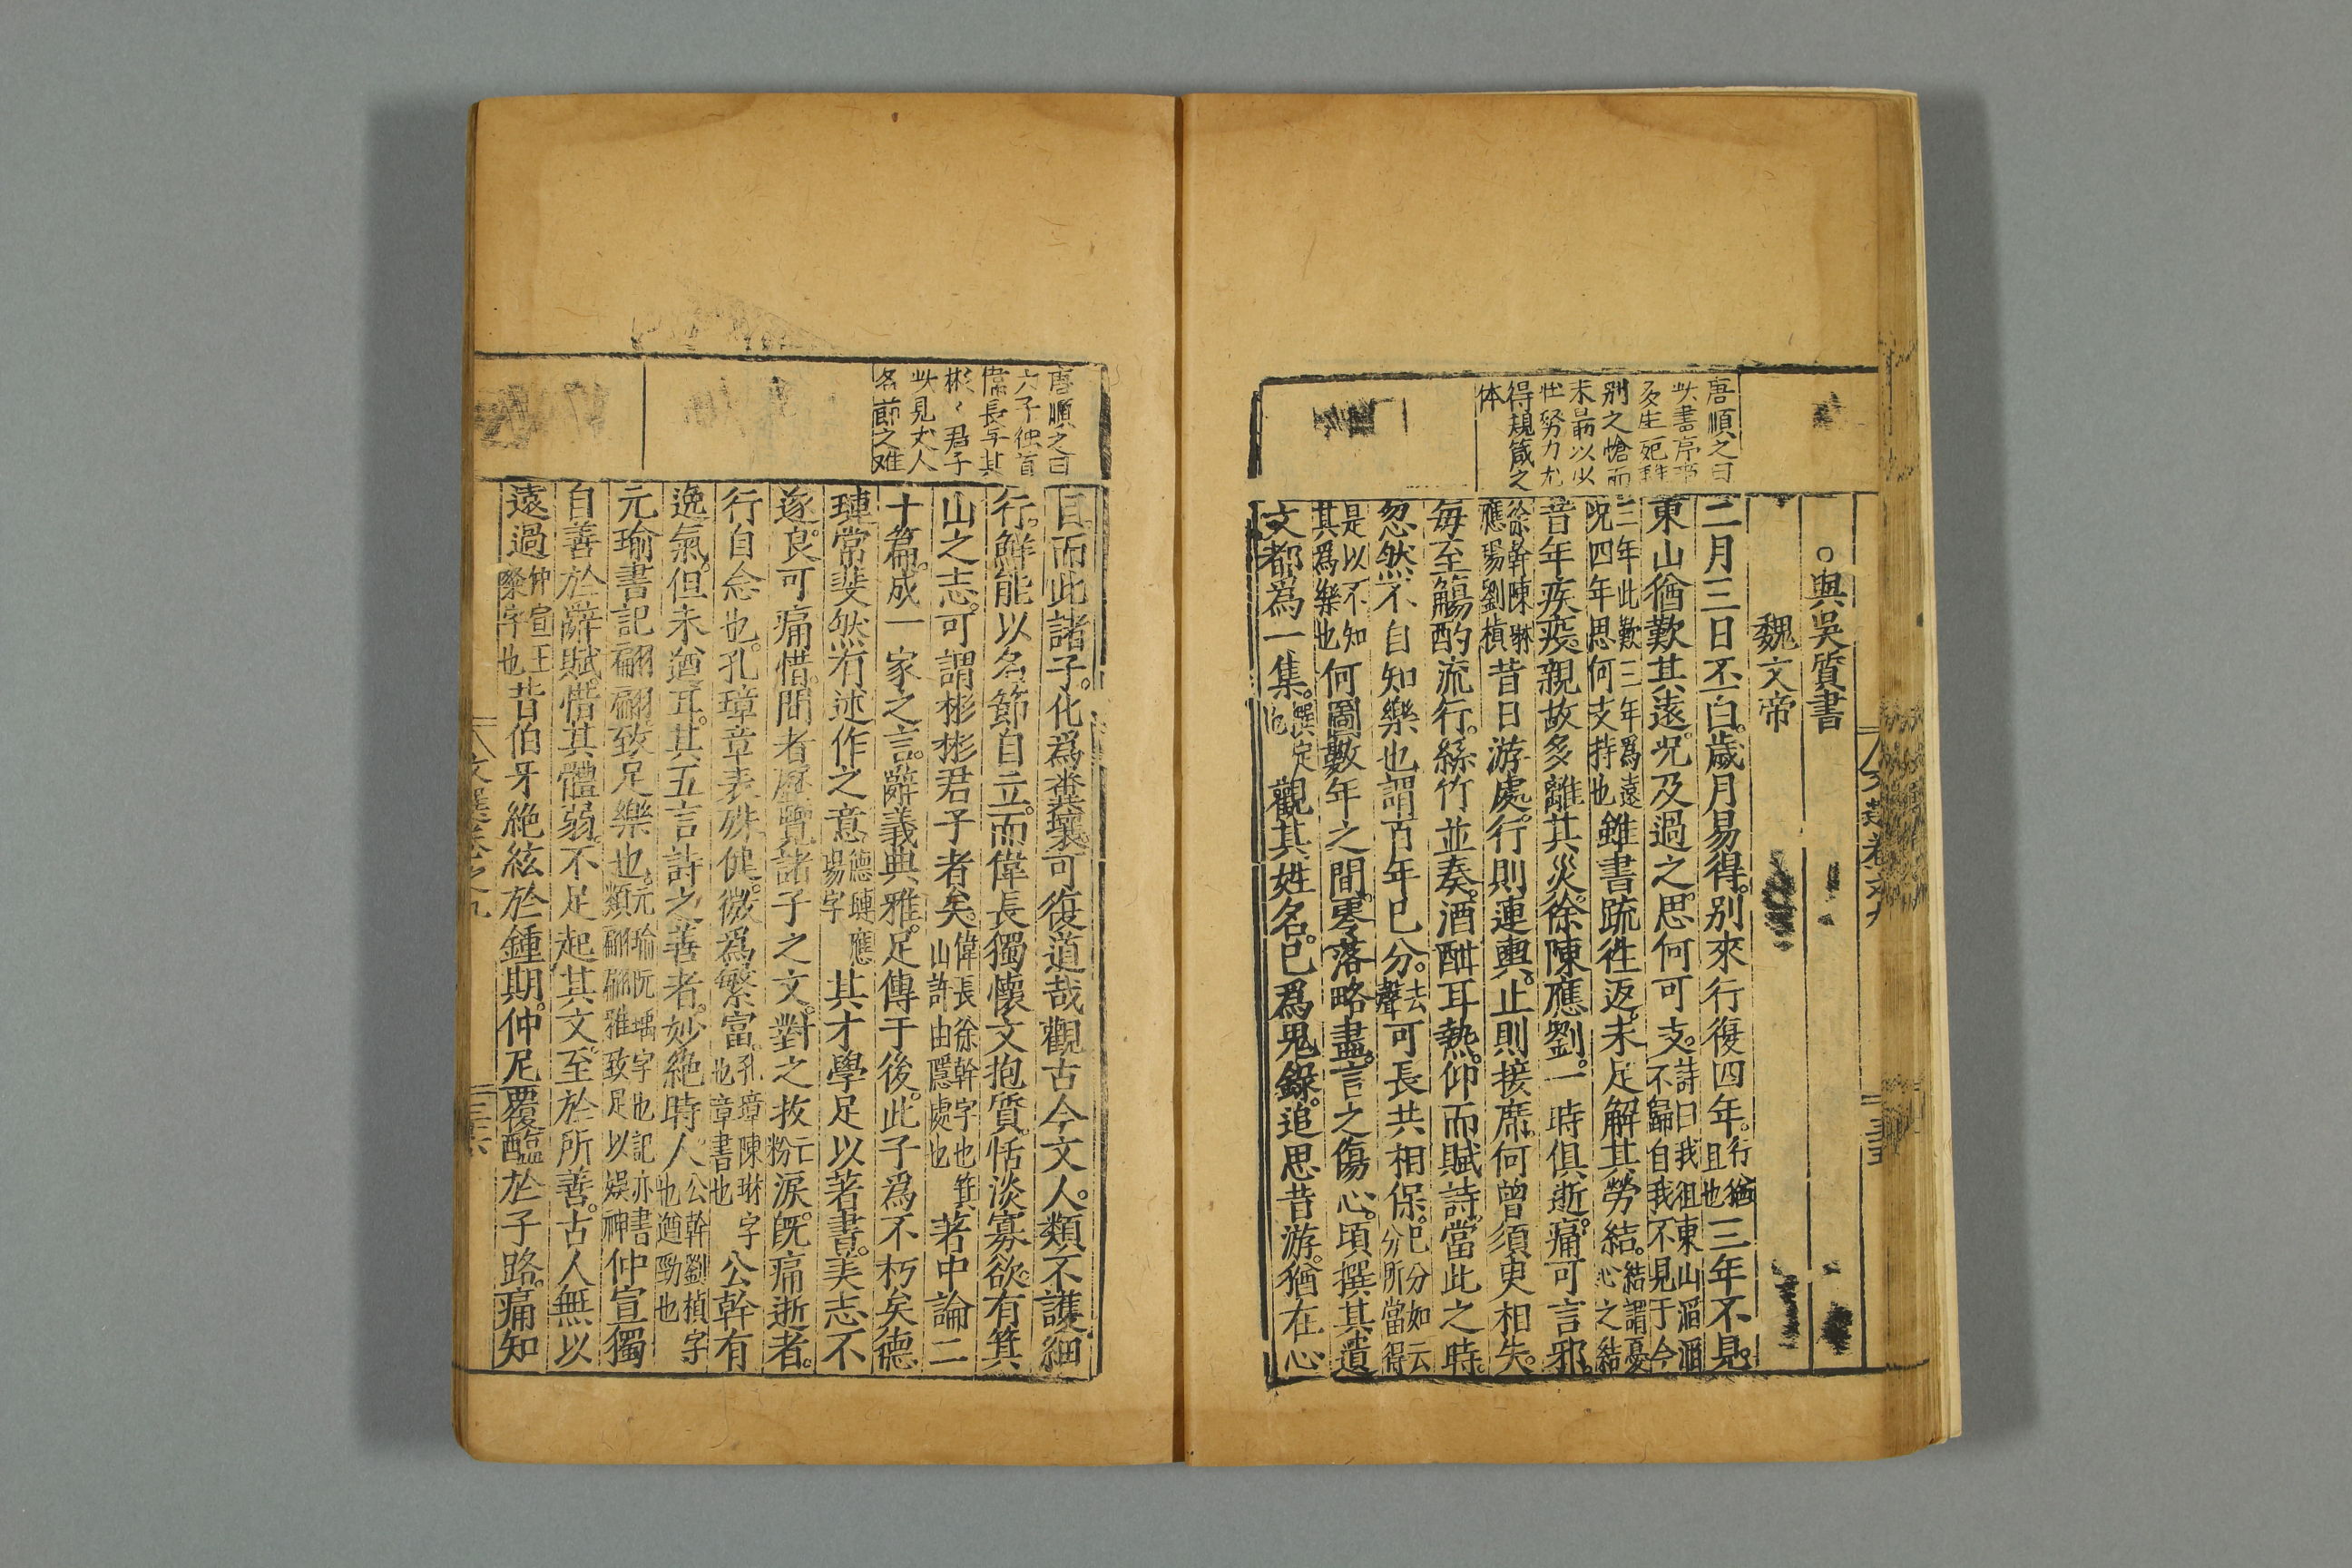 唐順之曰
此書序帝
及生死離
別之愴而
末最以少
壯努力尤
得規箴之
体
○與吳質書
魏文帝
二月三日丕白。歲月易得。別來行復四年。行猶且也三年不見。
東山猶歎其遠。况及過之。思何可支。詩曰我徂東山滔滔不歸自我不見于今
三年此歎三年爲遠况四年思何支持也雖書疏徃返。未足解其勞結。結謂憂心之結
昔年疾疫。親故多離其災。徐陳應劉。一時俱逝。痛可言邪。
徐幹陳琳應瑒劉楨昔日游處。行則連輿。止則接席。何曾須臾相失。
每至觴酌流行。絲竹並奏。酒酣耳熱。仰而賦詩。當此之時
忽然不自知樂也謂百年已分。去聲可長共相保。已分如云分所當得
是以不知其爲樂也何圖數年之間。零落略盡。言之傷心。頃撰其遺
文都爲一集。撰定也觀其姓名。已爲鬼錄。追思昔游。猶在心
唐順之曰
六子独首
偉長与其
彬〻君子
此見文人
名節之难
目。而此諸子。化爲糞壤。可復道哉觀古今文人。類不護細
行。鮮能以名節自立。而偉長獨懷文抱質。恬淡寡欲。有箕
山之志。可謂彬彬君子者矣。偉長徐幹字也箕山許由隱處也著中論二
十篇。成一家之言。辭義典雅。足傳于後。此子爲不朽矣德
璉常斐然有述作之意德璉應瑒字其才學足以著書。美志不
遂。良可痛惜。間者歷覽諸子之文。對之抆亡粉淚。旣痛逝者。
行自念也。孔璋章表殊健。微爲繁富。孔璋陳琳字也章書也公幹有
逸氣。但未遒耳。其五言詩之善者。妙絕時人公幹劉楨字也遒勁也
元瑜書記翩翩致足樂也。元瑜阮瑀字也記亦書類翩翩雅致足以娛神仲宣獨
自善於辭賦。惜其體弱不足起其文。至於所善。古人無以
遠過仲宣王粲字也昔伯牙絕絃於鍾期。仲尼覆醢於子路。痛知